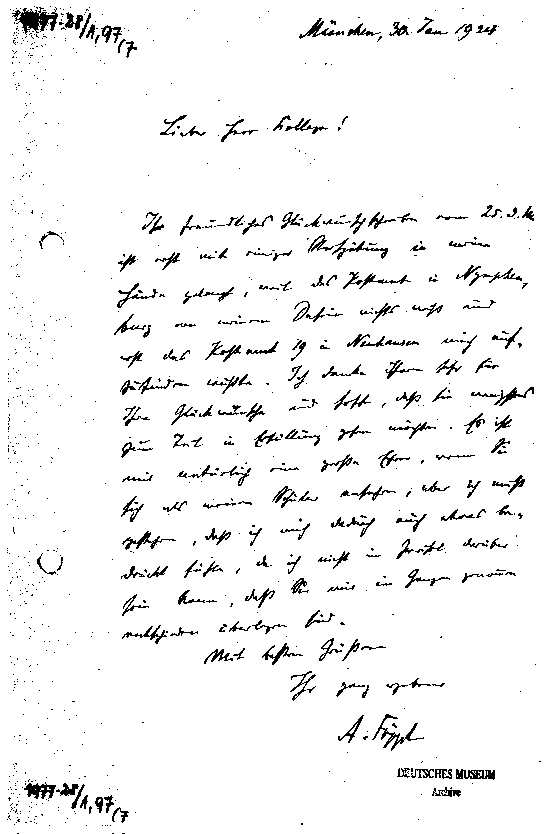 1977-28/A,97(7
München, 30. Jan 1924
Lieber Herr Kollege!
Ihr freundliches Glückwunschschreiben vom 25. d. M.
ist erst mit einiger Verspätung in meine
Hände gelangt, weil das Postamt in Nymphen-
burg von meinem Dasein nichts weiß und
erst das Postamt 19 in Neuhausen mich auf-
zufinden wußte. Ich danke Ihnen sehr für
Ihre Glückwünsche und hoffe, daß sie wenigstens
zum Teil in Erfüllung gehen möchten. Es ist
mir natürlich eine große Ehre, wenn Sie
sich als meinen Schüler ansehen, aber ich muß
gestehen, daß ich mich dadurch auch etwas be-
drückt fühle, da ich nicht im Zweifel darüber
sein kann, daß Sie mir im Ganzen genommen
entschieden überlegen sind.
Mit besten Grüßen
Ihr ganz ergebener
A. Föppl
DEUTSCHES MUSEUM
Archive
1977-28/A,97(7